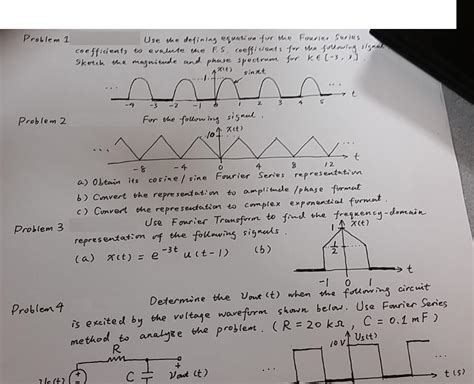 Problem 1 Use the defining equation for the Fourier Series
coefficients to evalute the F.S. coefficients for the following signal.
Sketch the magnitude and phase spectrum for k∈[-3, 3]
x(t)
1 sinπt
... ...
-4 -3 -2 -1 0 1 2 3 4 5 t
Problem 2 For the following signal.
10 x(t)
... ...
-8 -4 0 4 8 12 t
a) Obtain its cosine/sine Fourier Series representation
b) Convert the representation to amplitude/phase format
c) Convert the representation to complex exponential format.
Problem 3 Use Fourier Transform to find the frequency-domain
representation of the following signals.
(a) x(t) = e^-3t u(t-1) (b)
1 x(t)
1/2
-1 0 1 t
Problem 4 Determine the Vout(t) when the following circuit
is excited by the voltage waveform shown below. Use Fourier Series
method to analyze the problem. (R = 20 kΩ, C = 0.1 mF)
R
C Vout(t)
10V Vs(t)
... t(s)